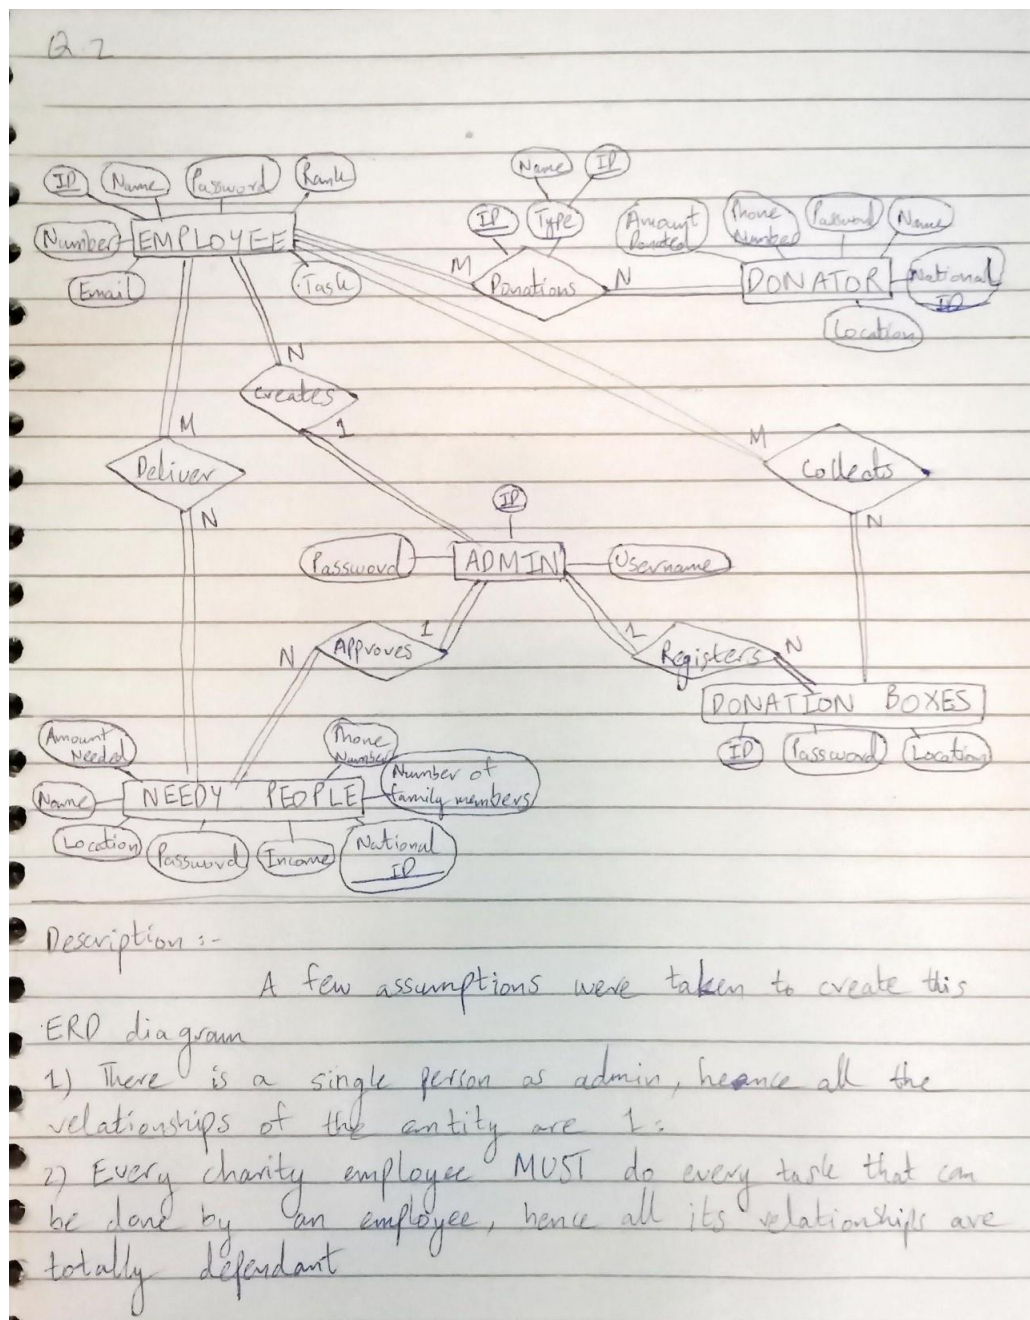 Q.2
ID Name Password Rank
Name ID
Number EMPLOYEE
ID Type
Amount Donated Phone Number Password Name
Email Task
M Donations N
DONATOR National ID
Location
N
Creates
1
M
Deliver
N
M
Collects
N
ID
Password ADMIN Username
N Approves 1
1 Registers N
DONATION BOXES
ID Password Location
Amount Needed
Phone Number
Name NEEDY PEOPLE Number of family members
Location Password Income National ID
Description :-
A few assumptions were taken to create this
ERD diagram
1) There is a single person as admin, heance all the
relationships of the entity are 1.
2) Every charity employee MUST do every task that can
be done by an employee, hence all its relationships are
totally defendant